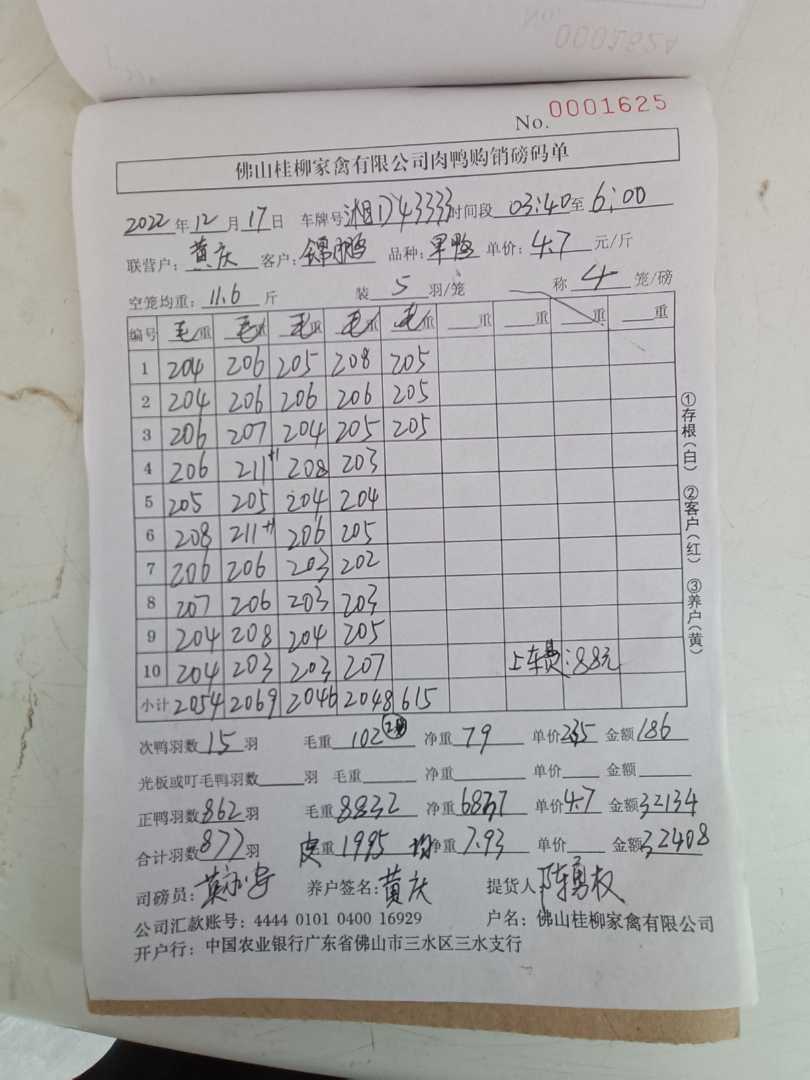 No. 0001624
No. 0001625
佛山桂柳家禽有限公司肉鸭购销磅码单
2022年12月17日 车牌号湘D43333时间段03:40至6:00
联营户:黄庆 客户:锦鹏 品种:果鸭 单价:4.7元/斤
空笼均重:11.6斤 装5羽/笼 称4笼/磅
编号 毛重 毛重 毛重 毛重 毛重 重 重 重 重
1 204 206 205 208 205
2 204 206 206 206 205
3 206 207 204 205 205
4 206 211+1 208 203
5 205 205 204 204
6 208 211+1 206 205
7 206 206 203 202
8 207 206 203 203
9 204 208 204 205
10 204 203 203 207 上车费:88元
小计 2054 2069 2046 2048 615
次鸭羽数15羽 毛重102 净重79 单价2.35 金额186
光板或叮毛鸭羽数 羽 毛重 净重 单价 金额
正鸭羽数862羽 毛重8832 净重6837 单价4.7 金额32134
合计羽数877羽 皮重1995 均净重7.93 单价 金额32408
司磅员: 养户签名:黄庆 提货人陈勇权
公司汇款账号:4444 0101 0400 16929 户名:佛山桂柳家禽有限公司
开户行:中国农业银行广东省佛山市三水区三水支行
①存根(白) ②客户(红) ③养户(黄)